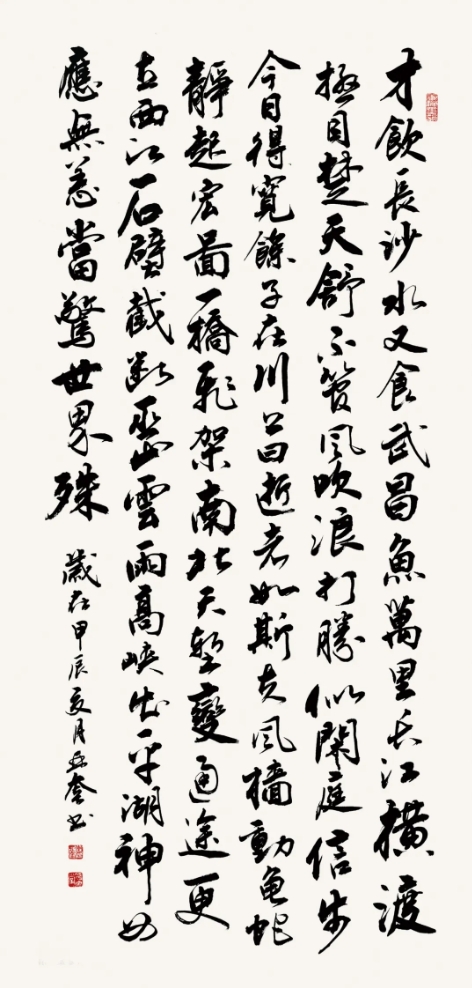 才飲長沙水又食武昌魚萬里长江橫渡
極目楚天舒不管風吹浪打勝似閑庭信步
今日得寬餘子在川上曰逝者如斯夫風檣動龜蛇
靜起宏圖一橋飛架南北天塹變通途更
立西江石壁截斷巫山雲雨高峽出平湖神女
應無恙當驚世界殊
歲在甲辰夏月奎書